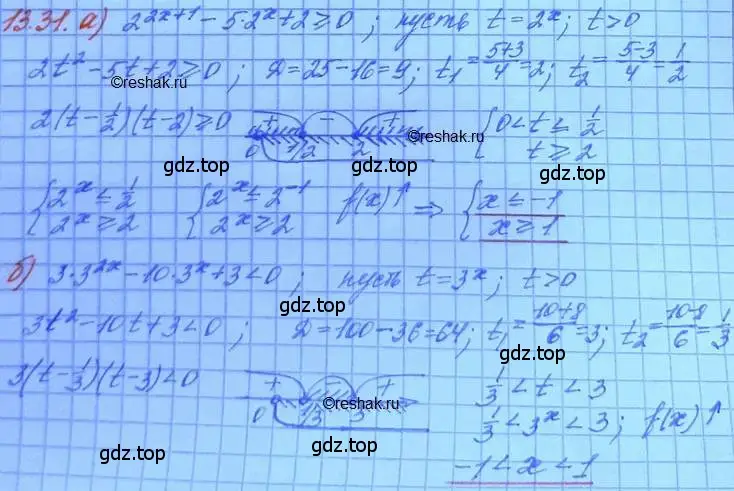 13.31. а) 2^{2x+1} - 5·2^x + 2 ≥ 0 ; пусть t = 2^x ; t > 0
2t² - 5t + 2 ≥ 0 ; Д = 25 - 16 = 9 ; t₁ = (5+3)/4 = 2 ; t₂ = (5-3)/4 = 1/2
©reshak.ru
2(t - 1/2)(t - 2) ≥ 0 + - + 0 1/2 2 { 0 < t ≤ 1/2
t ≥ 2
©reshak.ru
gdz.top gdz.top gdz.top
{ 2^x ≤ 1/2 { 2^x ≤ 2^{-1} f(x)↑ ⇒ { x ≤ -1
2^x ≥ 2 2^x ≥ 2 x ≥ 1
gdz.top
б) 3·3^{2x} - 10·3^x + 3 < 0 ; пусть t = 3^x ; t > 0
gdz.top
3t² - 10t + 3 < 0 ; Д = 100 - 36 = 64 ; t₁ = (10+8)/6 = 3 ; t₂ = (10-8)/6 = 1/3
gdz.top
3(t - 1/3)(t - 3) < 0 + - + 0 1/3 3 1/3 < t < 3
©reshak.ru
1/3 < 3^x < 3 ; f(x)↑
gdz.top gdz.top gdz.top
-1 < x < 1